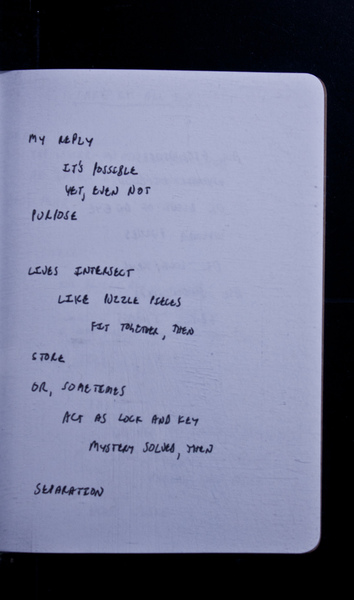 MY REPLY
IT'S POSSIBLE
YET, EVEN NOT
PURPOSE
LIVES INTERSECT
LIKE PUZZLE PIECES
FIT TOGETHER, THEN
STORE
OR, SOMETIMES
ACT AS LOCK AND KEY
MYSTERY SOLVED, THEN
SEPARATION